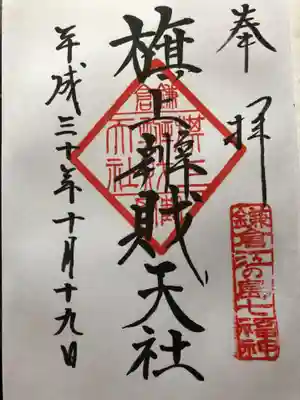 奉拝
鎌倉江の島七福神
旗上辨財天社
平成三十年十月十九日